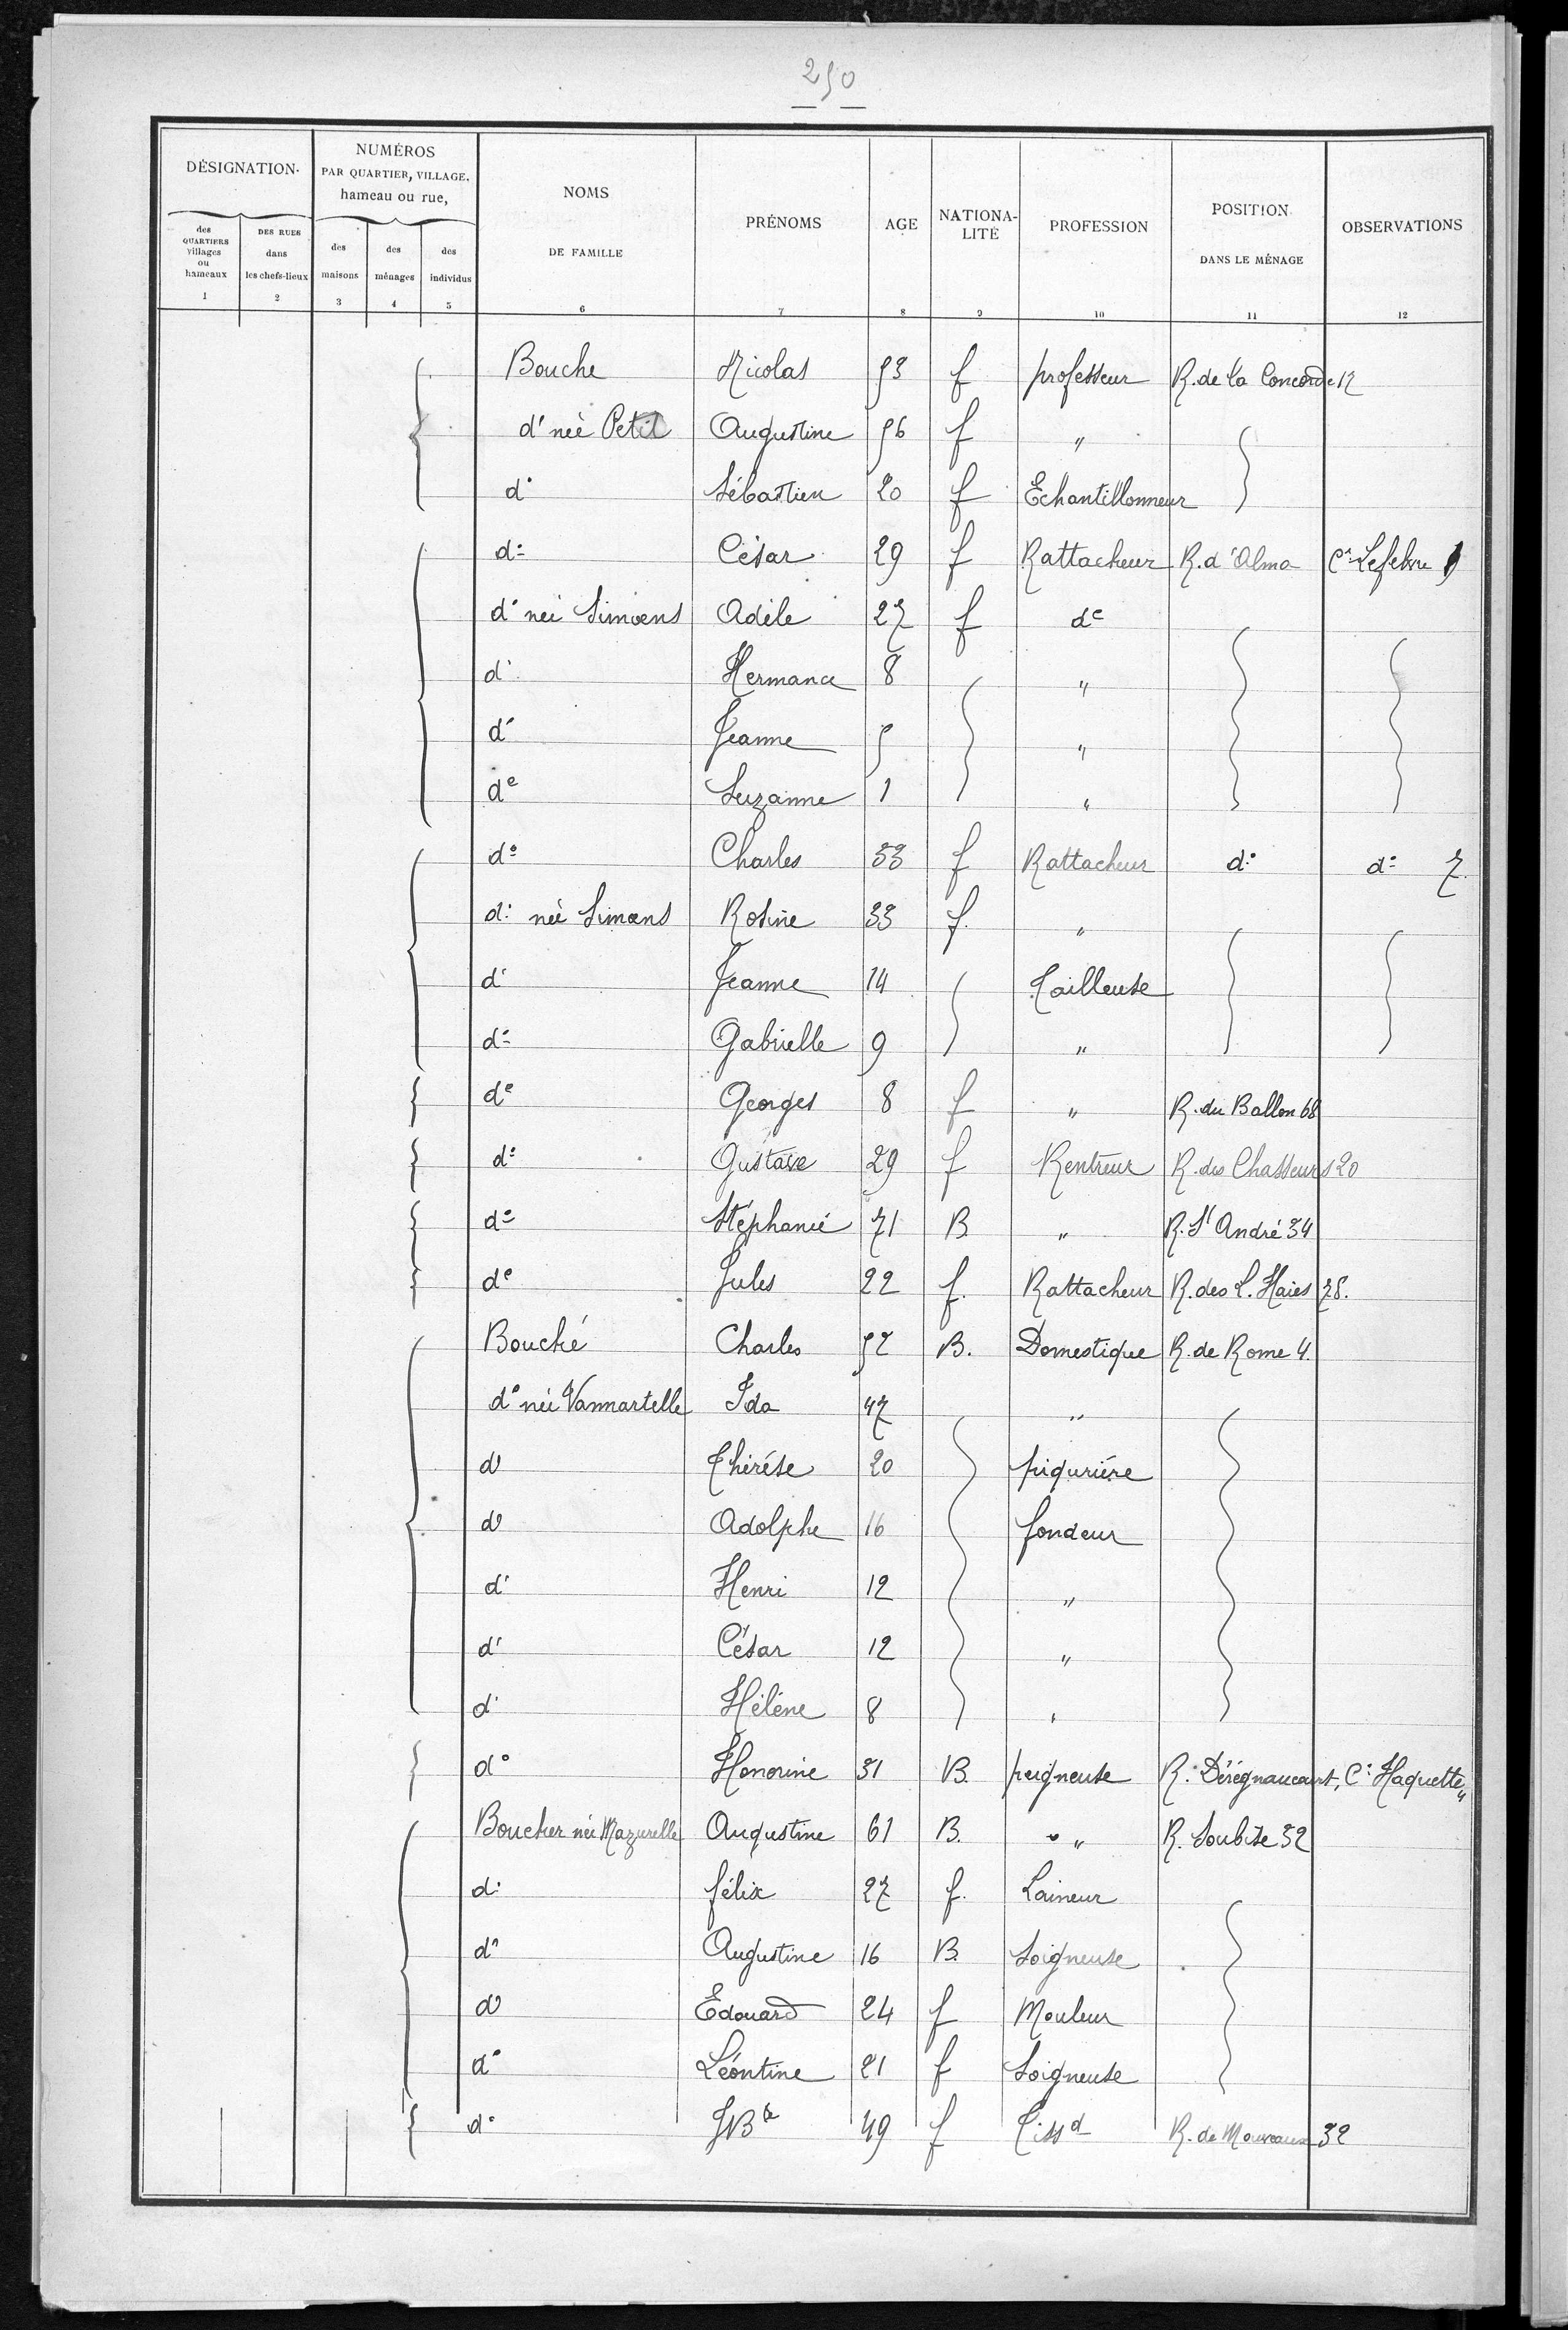 250
DÉSIGNATION.
NUMÉROS
PAR QUARTIER, VILLAGE,
hameau ou rue,
NOMS
DE FAMILLE
PRÉNOMS
AGE
NATIONA-
LITÉ
PROFESSION
POSITION
DANS LE MÉNAGE
OBSERVATIONS
des
QUARTIERS
villages
ou
hameaux
DES RUES
dans
les chefs-lieux
des
maisons
des
ménages
des
individus
1 2 3 4 5 6 7 8 9 10 11 12
Bouche Nicolas 53 f professeur R. de la Concorde 12
d° née Petit Augustine 56 f "
d° Sébastien 20 f Echantillonneur
d° César 29 f Rattacheur R. d'Alma Cr Lefebvre
d° née Simoens Adèle 27 f d°
d° Hermance 8 "
d° Jeanne 5 "
d° Suzanne 1 "
d° Charles 33 f Rattacheur d° d° 7.
d° née Simoens Rosine 33 f. "
d° Jeanne 14 Tailleuse
d° Gabrielle 9 "
d° Georges 8 f " R. du Ballon 68
d° Gustave 29 f Rentreur R. des Chasseurs 20
d° Stéphanie 71 B. " R. St André 34
d° Jules 22 f. Rattacheur R. des L. Haies 78.
Bouché Charles 52 B. Domestique R. de Rome 4.
d° née Vanmartelle Ida 47 "
d° Thérése 20 piqurière
d° Adolphe 16 fondeur
d° Henri 12 "
d° César 12 "
d° Hélène 8 "
d° Honorine 31 B. peigneuse R. Dérégnaucourt, Cr Haquette "
Boucher née Mazurelle Augustine 61 B. " R. Soubise 32
d° félix 27 f. Laineur
d° Augustine 16 B. Soigneuse
d° Edouard 24 f Mouleur
d° Léontine 21 f Soigneuse
d° JBte 49 f Tissd R. de Mouveaux 32